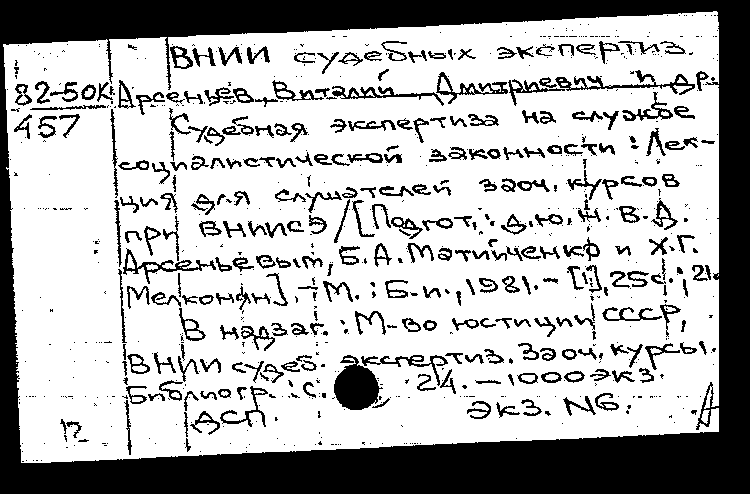 ВНИИ судебных экспертиз.
82-50к Арсеньев, Виталий Дмитриевич и др.
457 Судебная экспертиза на службе
социалистической законности : Лек-
ция для слушателей заоч. курсов
при ВНИИСЭ / [Подгот.: д.ю.н. В.Д.
Арсеньевым, Б.А. Матийченко и Х.Г.
Мелконян]. - М. : Б.и., 1981. - [1], 25с.; 21.
В надзаг. : М-во юстиции СССР,
ВНИИ судеб. экспертиз. Заоч. курсы.
Библиогр. : с. 24. - 1000 экз.
ДСП. экз. N6.
12 А